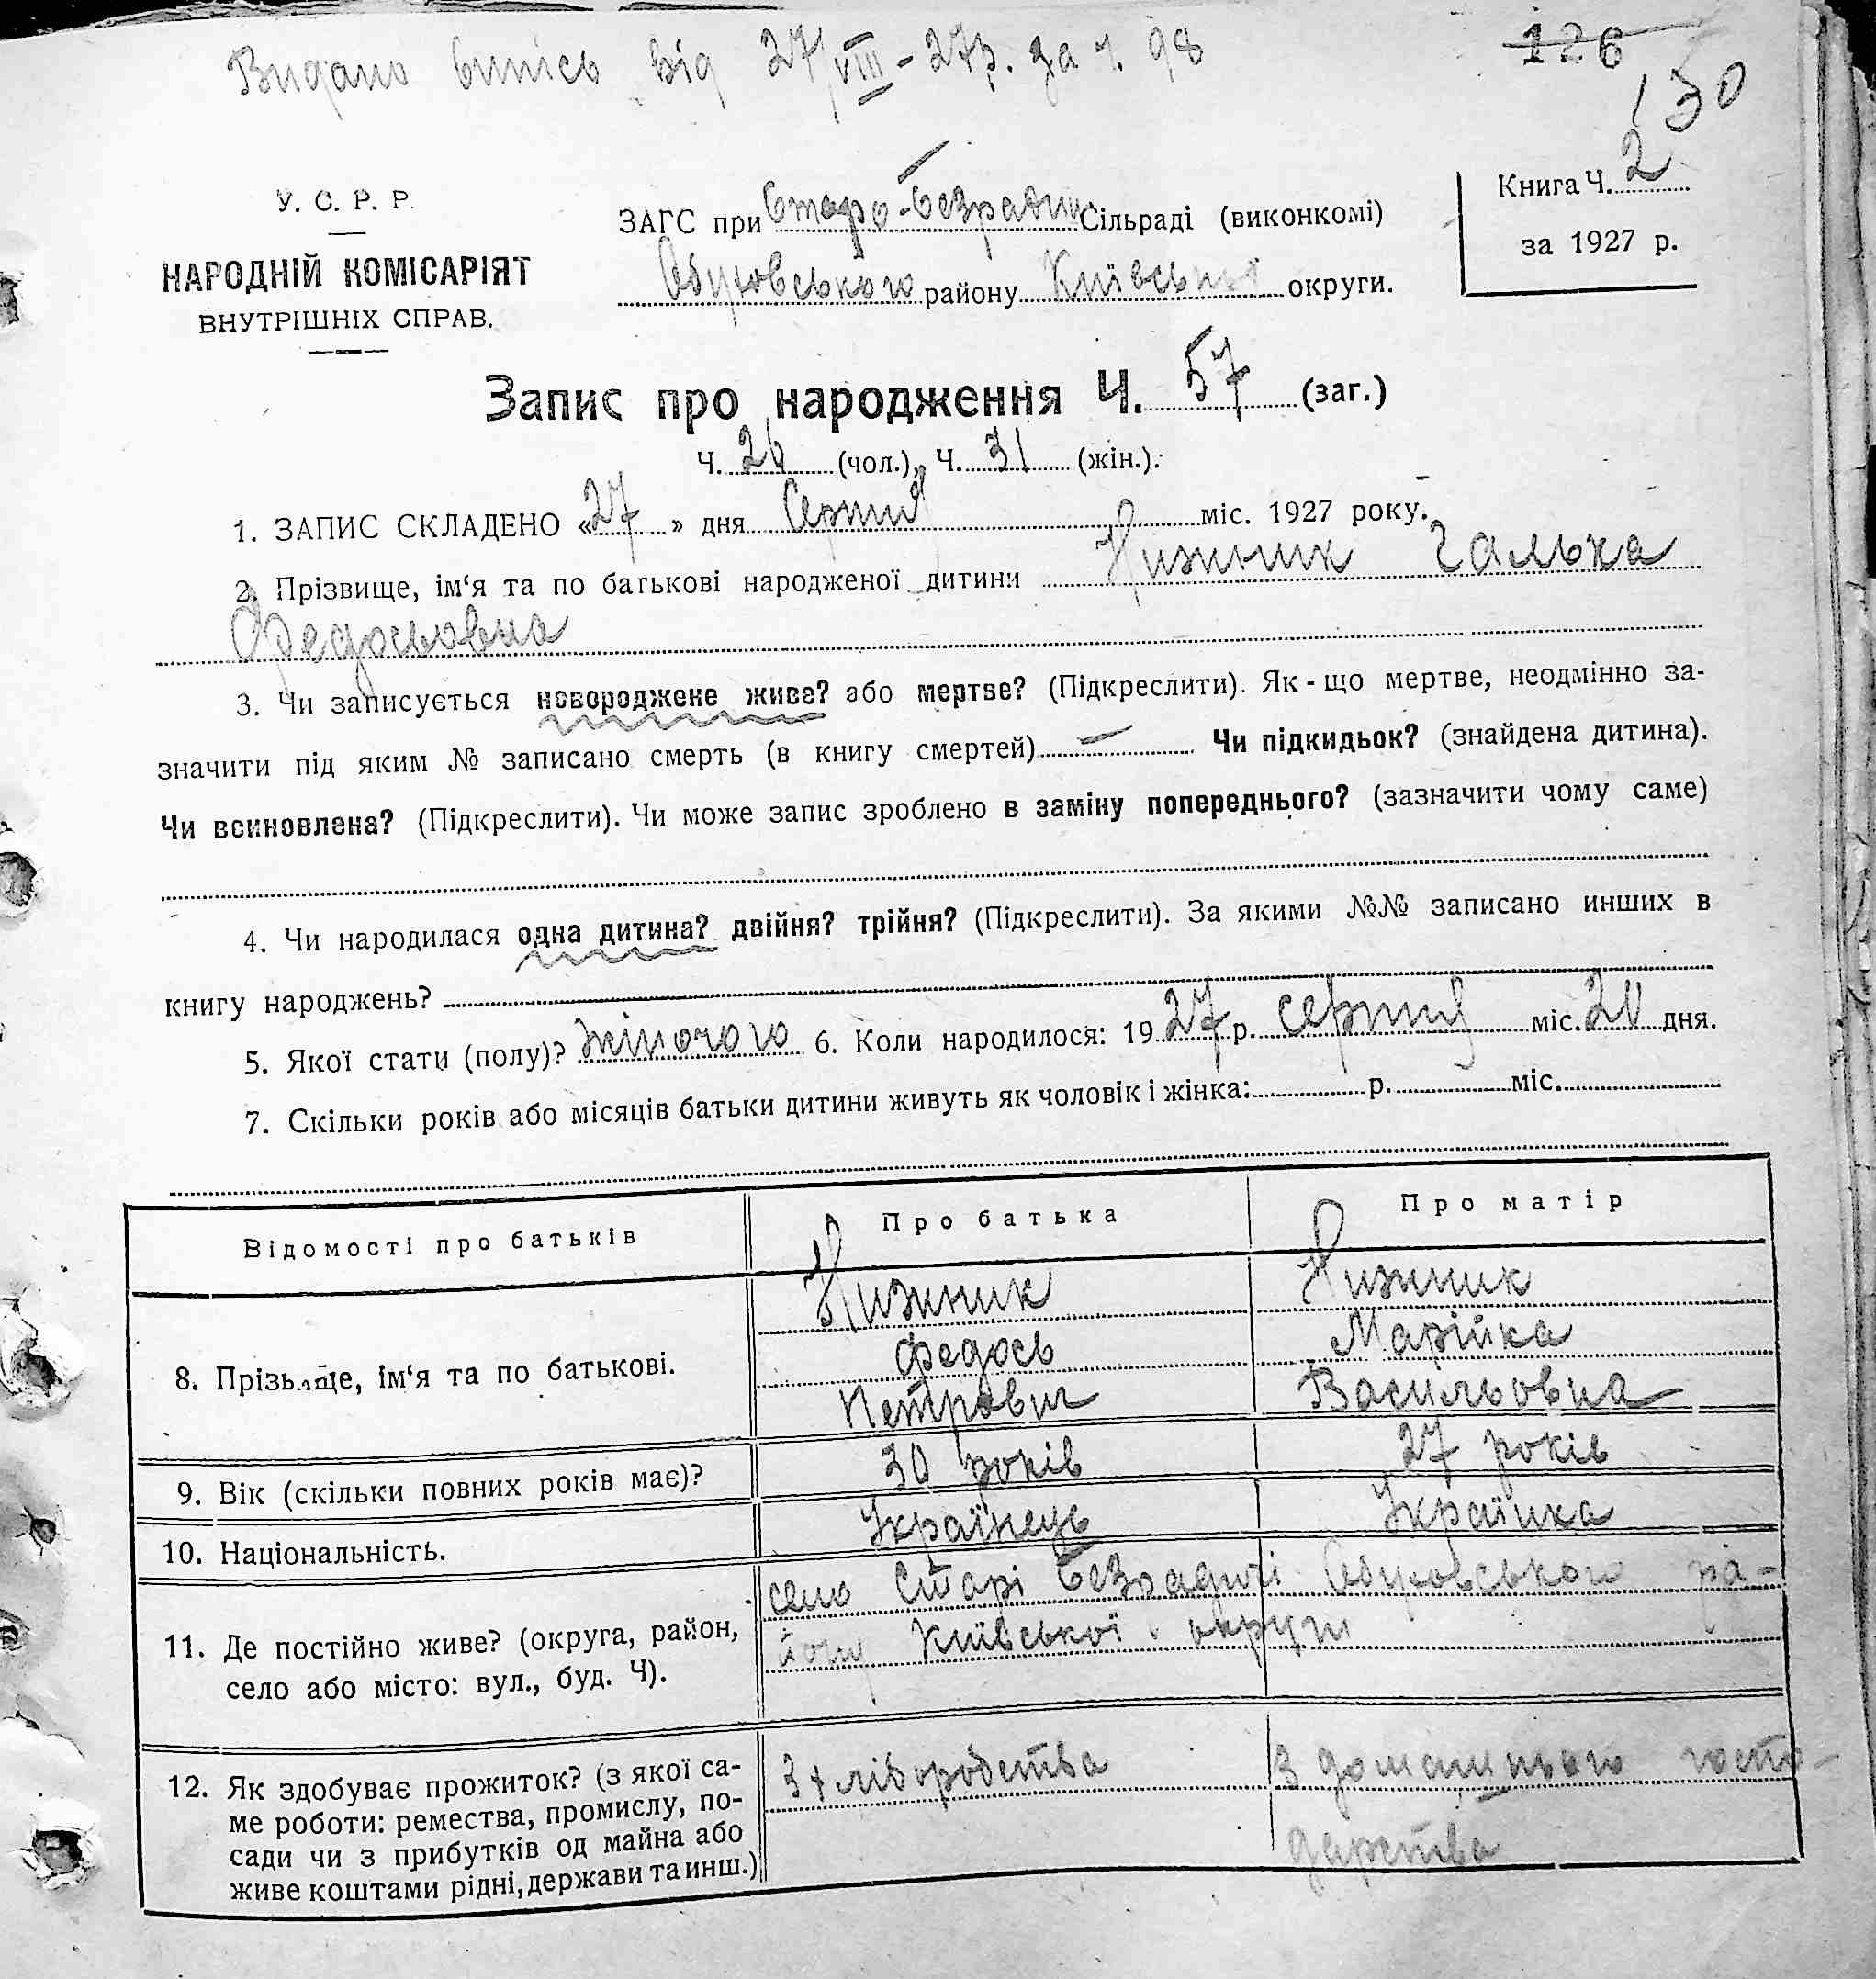 Видано випісь від 27/VIII-27р. за ч. 98
126
130
У. С. Р. Р.
НАРОДНІЙ КОМІСАРІЯТ
ВНУТРІШНІХ СПРАВ.
ЗАГС при Старо-Безрадич Сільраді (виконкомі)
Обуховського району Київської округи.
Книга Ч. 2
за 1927 р.
Запис про народження Ч. 57 (заг.)
Ч. 26 (чол.), Ч. 31 (жін.).
1. ЗАПИС СКЛАДЕНО «27» дня Серпня міс. 1927 року.
2. Прізвище, ім‘я та по батькові народженої дитини Нижник Галька
Федосьовна
3. Чи записується новороджене живе? або мертве? (Підкреслити). Як-що мертве, неодмінно за-
значити під яким № записано смерть (в книгу смертей) — Чи підкидьок? (знайдена дитина).
Чи всиновлена? (Підкреслити). Чи може запис зроблено в заміну попереднього? (зазначити чому саме)
4. Чи народилася одна дитина? двійня? трійня? (Підкреслити). За якими №№ записано инших в
книгу народжень?
5. Якої стати (полу)? жіночого 6. Коли народилося: 1927 р. серпня міс. 20 дня.
7. Скільки років або місяців батьки дитини живуть як чоловік і жінка: р. міс.
Відомості про батьків Про батька Про матір
Нижник Нижник
8. Прізвище, ім‘я та по батькові. Федось Марійка
Петрович Васильовна
9. Вік (скільки повних років має)? 30 років 27 років
10. Національність. Українець Українка
село Старі Безрадичі Обуховського ра-
11. Де постійно живе? (округа, район, йону Київської округи
село або місто: вул., буд. Ч).
12. Як здобуває прожиток? (з якої са- З хліборобства З домашнього госпо-
ме роботи: ремества, промислу, по- дарства
сади чи з прибутків од майна або
живе коштами рідні, держави та инш.)